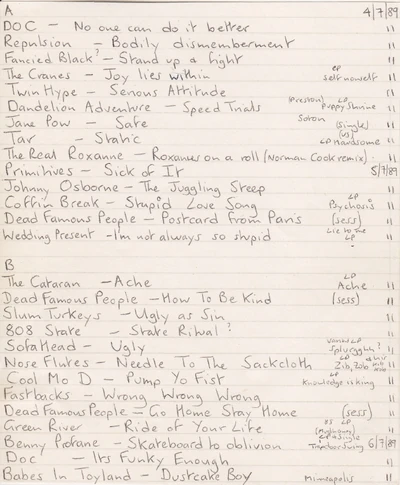 A 4/7/89
DOC – No one can do it better "
Repulsion – Bodily dismemberment "
Fancied Black? – Stand up & fight "
The Cranes – Joy lies within EP self nonself "
Twin Hype – Serious Attitude "
Dandelion Adventure – Speed Trials (Preston) LP Puppy Shrine "
Jane Pow – Safe Soton (single) "
Tar – Static (US) LP Handsome "
The Real Roxanne – Roxanne's on a roll (Norman Cook remix) "
Primitives – Sick of It 5/7/89
Johnny Osborne – The Juggling Steep "
Coffin Break – Stupid Love Song LP Psychosis "
Dead Famous People – Postcard from Paris (sess) "
Wedding Present – I'm not always so stupid Lie to me LP "
B
The Cataran – Ache LP Ache "
Dead Famous People – How To Be Kind (sess) "
Slum Turkeys – Ugly as Sin "
808 State – State Ritual? "
SofaHead – Ugly LP "
Nose Flutes – Needle To The Sackcloth LP Zib, Zob "
Cool Mo D – Pump Yo Fist LP Knowledge is king "
Fastbacks – Wrong Wrong Wrong "
Dead Famous People – Go Home Stay Home (sess) "
Green River – Ride of Your Life 85 LP (Mudhoney) "
Benny Profane – Skateboard to oblivion LP & Single 6/7/89
Doc – Its Funky Enough "
Babes In Toyland – Dustcake Boy Mineapolis "